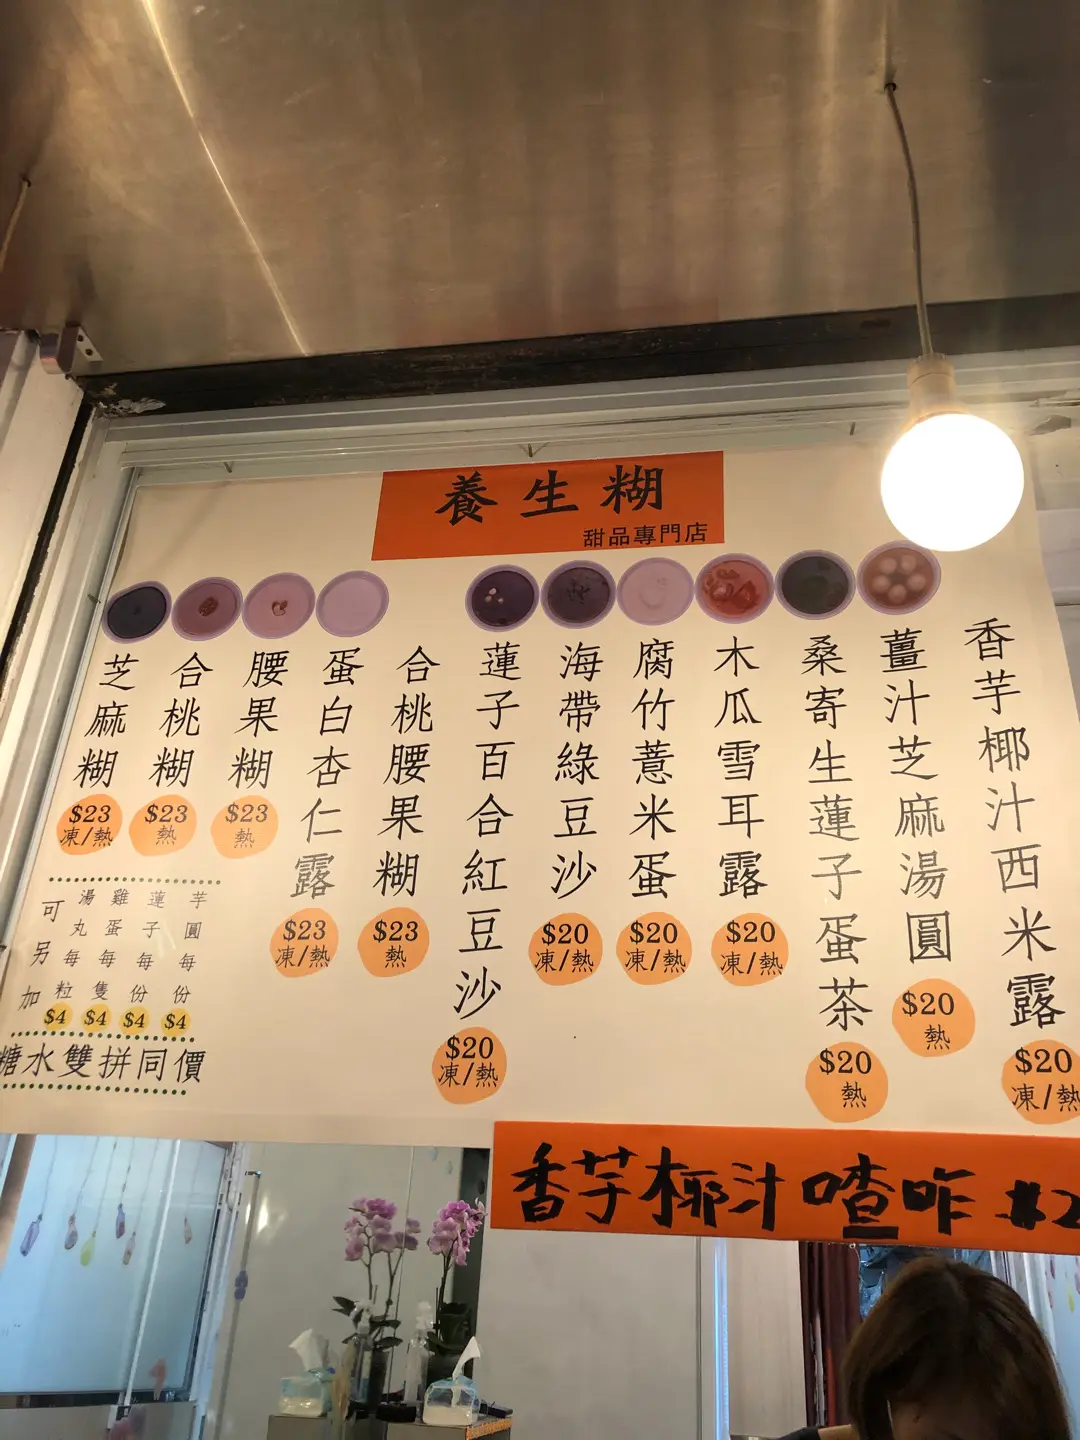 養生糊
甜品專門店
芝麻糊
$23
凍/熱
合桃糊
$23
熱
腰果糊
$23
熱
蛋白杏仁露
$23
凍/熱
合桃腰果糊
$23
熱
蓮子百合紅豆沙
$20
凍/熱
海帶綠豆沙
$20
凍/熱
腐竹薏米蛋
$20
凍/熱
木瓜雪耳露
$20
凍/熱
桑寄生蓮子蛋茶
$20
熱
薑汁芝麻湯圓
$20
熱
香芋椰汁西米露
$20
凍/熱
可另加
湯丸每粒
$4
雞蛋每隻
$4
蓮子每份
$4
芋圓每份
$4
糖水雙拼同價
香芋椰汁喳咋